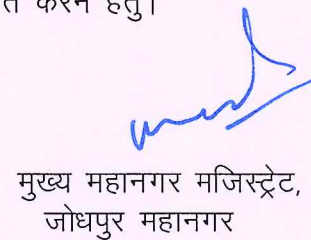 करने हेतु।
मुख्य महानगर मजिस्ट्रेट,
जोधपुर महानगर